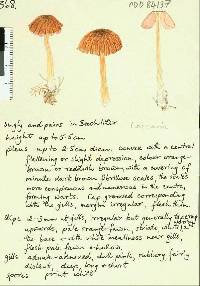 568
NDD 84137
Laccaria
Singly and pairs in Beech litter
height up to 5.5cm
pileus up to 2.5cm diam. convex with a central
flattening or slight depression, colour orange-
brown or reddish brown with a covering of
minute dark brown fibrillose scales, the scales
more conspicuous and numerous in the centre,
forming warts. Cap grooved corresponding
with the gills, margin irregular, flesh thin.
Stipe 2-3mm at gills, irregular but generally tapering
upwards, pale fawn, tinted white
to base with white mealiness near gills,
flesh pale fawn
gills adnate-adnexed, dull pink, fairly
distant, deep, long & short
spores print white